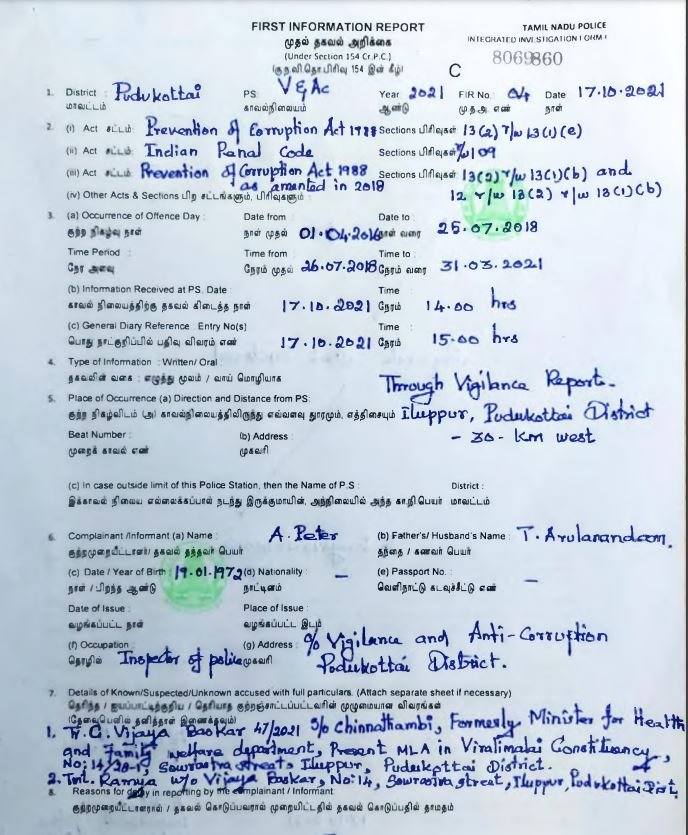 FIRST INFORMATION REPORT
TAMIL NADU POLICE
முதல் தகவல் அறிக்கை
INTEGRATED INVESTIGATION FORM I
(Under Section 154 Cr.P.C.)
8069860
(கு.ந.வி.தொ.பிரிவு 154 இன் கீழ்)
C
1. District : Pudukottai PS: V & AC Year 2021 FIR No. 04 Date 17.10.2021
மாவட்டம் காவல்நிலையம் ஆண்டு மு.த.அ. எண் நாள்
2. (i) Act சட்டம்: Prevention of Corruption Act 1988 Sections பிரிவுகள் 13(2) r/w 13(1)(e)
(ii) Act சட்டம்: Indian Penal Code Sections பிரிவுகள் u/s 109
(iii) Act சட்டம்: Prevention of Corruption Act 1988 Sections பிரிவுகள் 13(2) r/w 13(1)(b) and
as amented in 2018
(iv) Other Acts & Sections பிற சட்டங்களும், பிரிவுகளும் : 12 r/w 13(2) r/w 13(1)(b)
3. (a) Occurrence of Offence Day : Date from Date to :
குற்ற நிகழ்வு நாள் நாள் முதல் 01.04.2016 நாள் வரை 25.07.2018
Time Period : Time from Time to :
நேர அளவு நேரம் முதல் 26.07.2018 நேரம் வரை 31.03.2021
(b) Information Received at PS. Date : Time :
காவல் நிலையத்திற்கு தகவல் கிடைத்த நாள் 17.10.2021 நேரம் 14.00 hrs
(c) General Diary Reference : Entry No(s) Time :
பொது நாட்குறிப்பில் பதிவு விவரம் எண் 17.10.2021 நேரம் 15.00 hrs
4. Type of Information : Written/ Oral :
தகவலின் வகை : எழுத்து மூலம் / வாய் மொழியாக Through Vigilance Report.
5. Place of Occurrence (a) Direction and Distance from PS:
குற்ற நிகழ்விடம் (அ) காவல்நிலையத்திலிருந்து எவ்வளவு தூரமும், எத்திசையும் Iluppur, Pudukottai District
Beat Number : (b) Address : - 30 - km west
முறைக் காவல் எண் முகவரி
(c) In case outside limit of this Police Station, then the Name of P.S : District :
இக்காவல் நிலைய எல்லைக்கப்பால் நடந்து இருக்குமாயின், அந்நிலையில் அந்த கா.நி.பெயர் மாவட்டம்
6. Complainant /Informant (a) Name : A. Peter (b) Father's/ Husband's Name : T. Arulanandam.
குற்றமுறையீட்டாளர்/ தகவல் தந்தவர் பெயர் தந்தை / கணவர் பெயர்
(c) Date / Year of Birth : 19.01.1972 (d) Nationality : – (e) Passport No. : –
நாள் / பிறந்த ஆண்டு நாட்டினம் வெளிநாட்டு கடவுச்சீட்டு எண்
Date of Issue : Place of Issue :
வழங்கப்பட்ட நாள் வழங்கப்பட்ட இடம்
(f) Occupation : (g) Address : c/o Vigilance and Anti-Corruption
தொழில் Inspector of police முகவரி Pudukottai District.
7. Details of Known/Suspected/Unknown accused with full particulars. (Attach separate sheet if necessary)
தெரிந்த / ஐயப்பாட்டிற்குரிய / தெரியாத குற்றஞ்சாட்டப்பட்டவரின் முழுமையான விவரங்கள்
(தேவையெனில் தனித்தாள் இணைக்கவும்)
1. Tr. C. Vijaya Baskar 47/2021 S/o Chinnathambi, Formerly Minister for Health
and Family welfare department, Present MLA in Viralimalai Constituency,
No; 14/ Sowrastra street, Iluppur, Pudukottai District.
2. Tmt. Ramya W/o Vijaya Baskar, No: 14, Sowrastra street, Iluppur, Pudukottai Dist.
8. Reasons for delay in reporting by the complainant / Informant
குற்றமுறையீட்டாளரால் / தகவல் கொடுப்பவரால் முறையிட்டதில் தகவல் கொடுப்பதில் தாமதம்